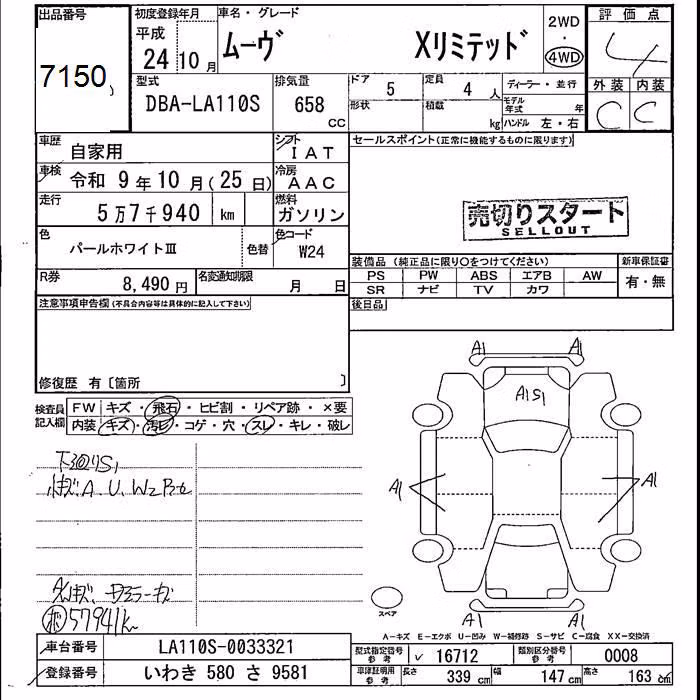 出品番号
7150
初度登録年月
平成
24 10 月
車名・グレード
ムーヴ Xリミテッド
2WD
・
4WD
評価点
4
外装 内装
C C
型式
DBA-LA110S
排気量
658
CC
ドア
5
形状
定員
4 人
積載
kg
ディーラー・並行
モデル年式 年
ハンドル 左・右
車歴
自家用
シフト
IAT
車検
令和 9年10月(25日)
冷房
AAC
走行
5万7千940 km
燃料
ガソリン
色
パールホワイトⅢ
色替
色コード
W24
R券
8,490円
名変通知期限
月 日
セールスポイント(正常に機能するものに限ります)
売切りスタート
SELLOUT
装備品(純正品に限り○をつけてください)
PS PW ABS エアB AW
SR ナビ TV カワ
新車保証書
有・無
後日品
注意事項申告欄(不具合内容等は具体的に記入して下さい)
修復歴 有〔箇所 〕
検査員
記入欄
FW キズ・飛石・ヒビ割・リペア跡・×要
内装 キズ・汚レ・コゲ・穴・スレ・キレ・破レ
A1 A1
A1S1
A1 A1
A1 A1
下廻りS1
小キズ.A.U.W2
57941k
スペア
A-キズ E-エクボ U-凹み W-補修跡 S-サビ C-腐食 XX-交換済
車台番号
LA110S-0033321
登録番号
いわき 580 さ 9581
型式指定番号
参考
16712
類別区分番号
参考
0008
車庫証明用
参考
長さ 339 cm 幅 147 cm 高さ 163 cm